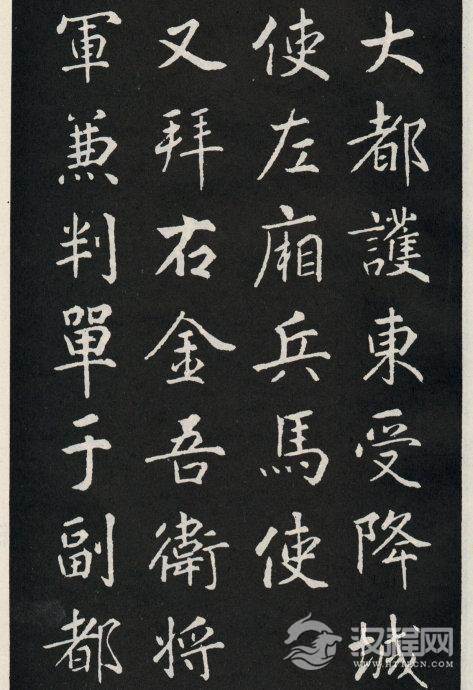 大都護東受降城
使左廂兵馬使
又拜右金吾衛將
軍兼判單于副都
汉程网
WWW.HTTPCN.COM